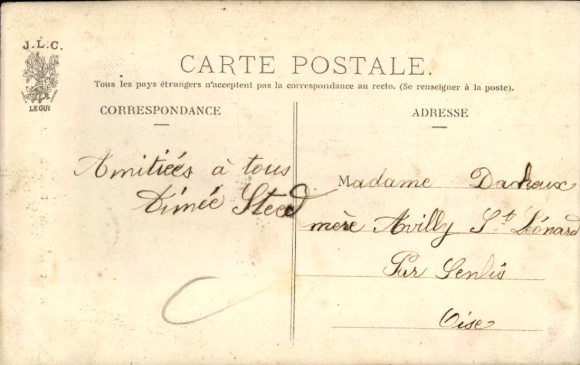 J.L.C.
LE GUI
CARTE POSTALE.
Tous les pays étrangers n'acceptent pas la correspondance au recto. (Se renseigner à la poste).
CORRESPONDANCE
ADRESSE
Amitiées à tous
Aimée Steed
Madame Dacheux
mère Avilly St Léonard
Par Senlis
Oise